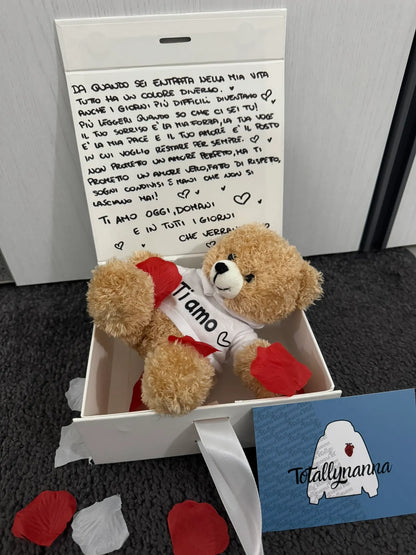 DA QUANDO SEI ENTRATA NELLA MIA VITA
TUTTO HA UN COLORE DIVERSO.
ANCHE I GIORNI PIÙ DIFFICILI DIVENTANO
PIÙ LEGGERI QUANDO SO CHE CI SEI TU!
IL TUO SORRISO È LA MIA FORZA, LA TUA VOCE
È LA MIA PACE E IL TUO AMORE È IL POSTO
IN CUI VOGLIO RESTARE PER SEMPRE.
NON PROMETTO UN AMORE PERFETTO, MA TI
PROMETTO UN AMORE VERO, FATTO DI RISPETTO,
SOGNI CONDIVISI E MANI CHE NON SI
LASCIANO MAI!
TI AMO OGGI, DOMANI
E IN TUTTI I GIORNI
CHE VERRA
Ti amo
Totallynanna